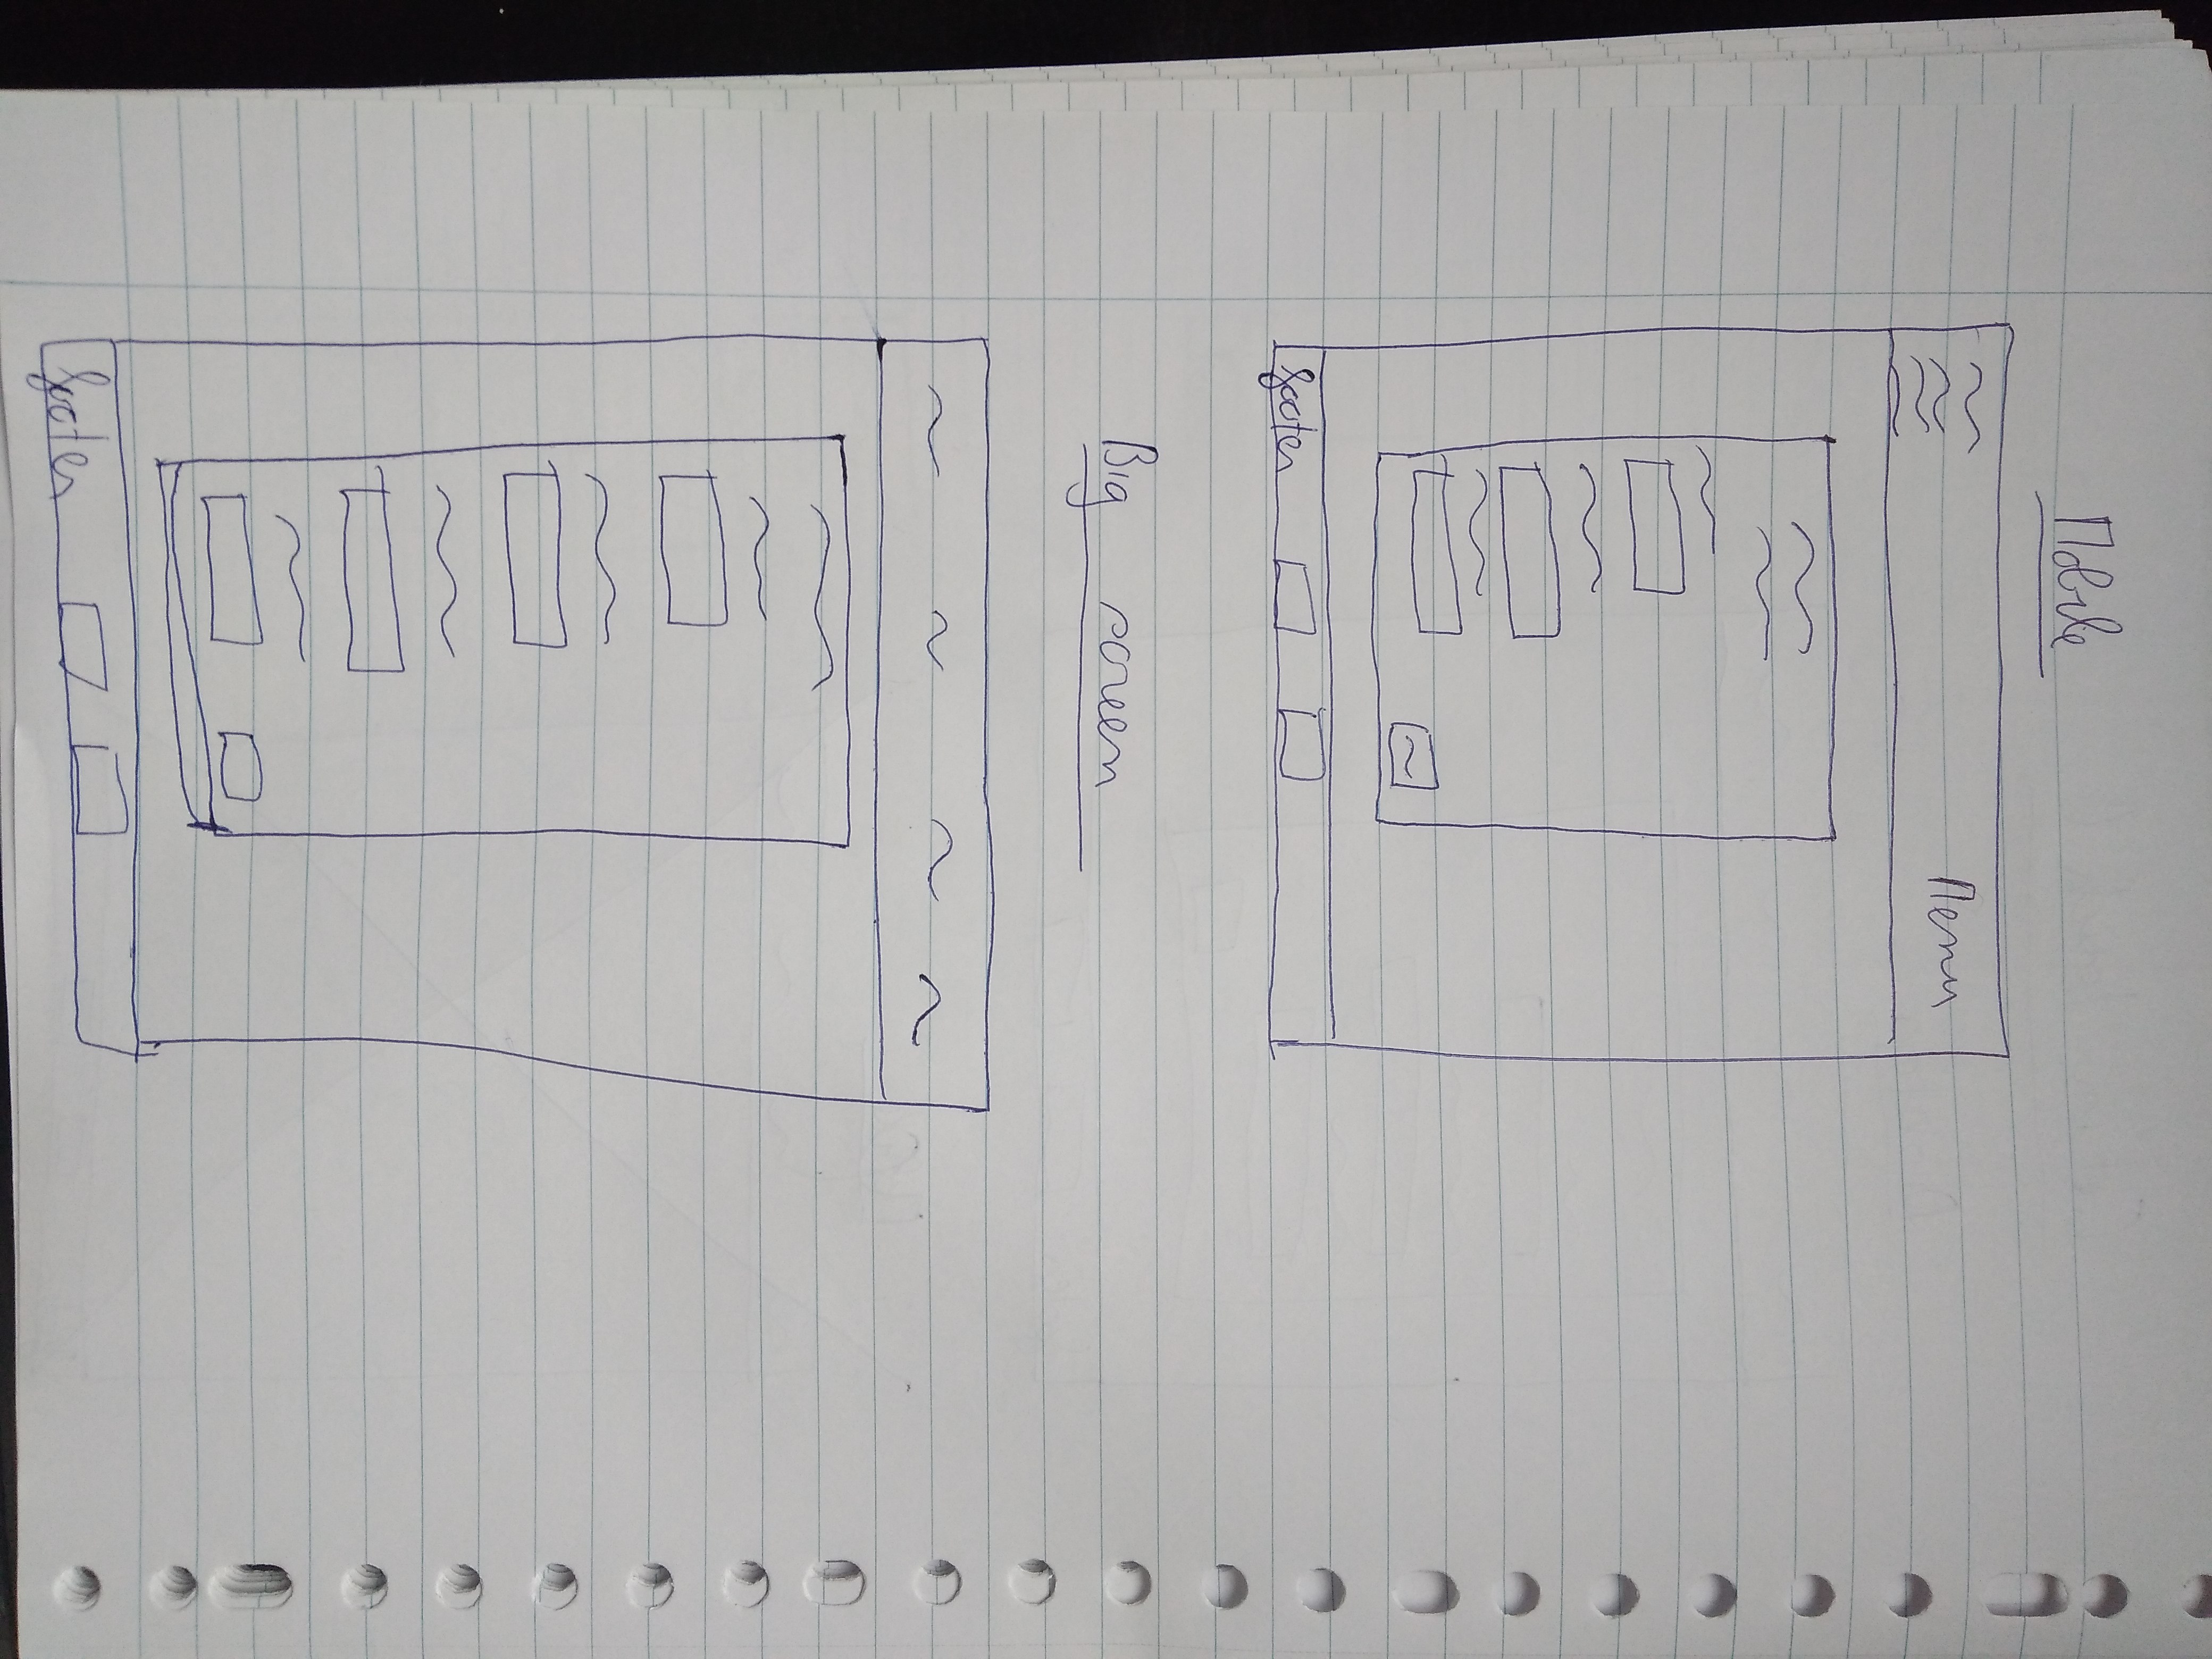 Mobile
Menu
footer
Big screen
footer